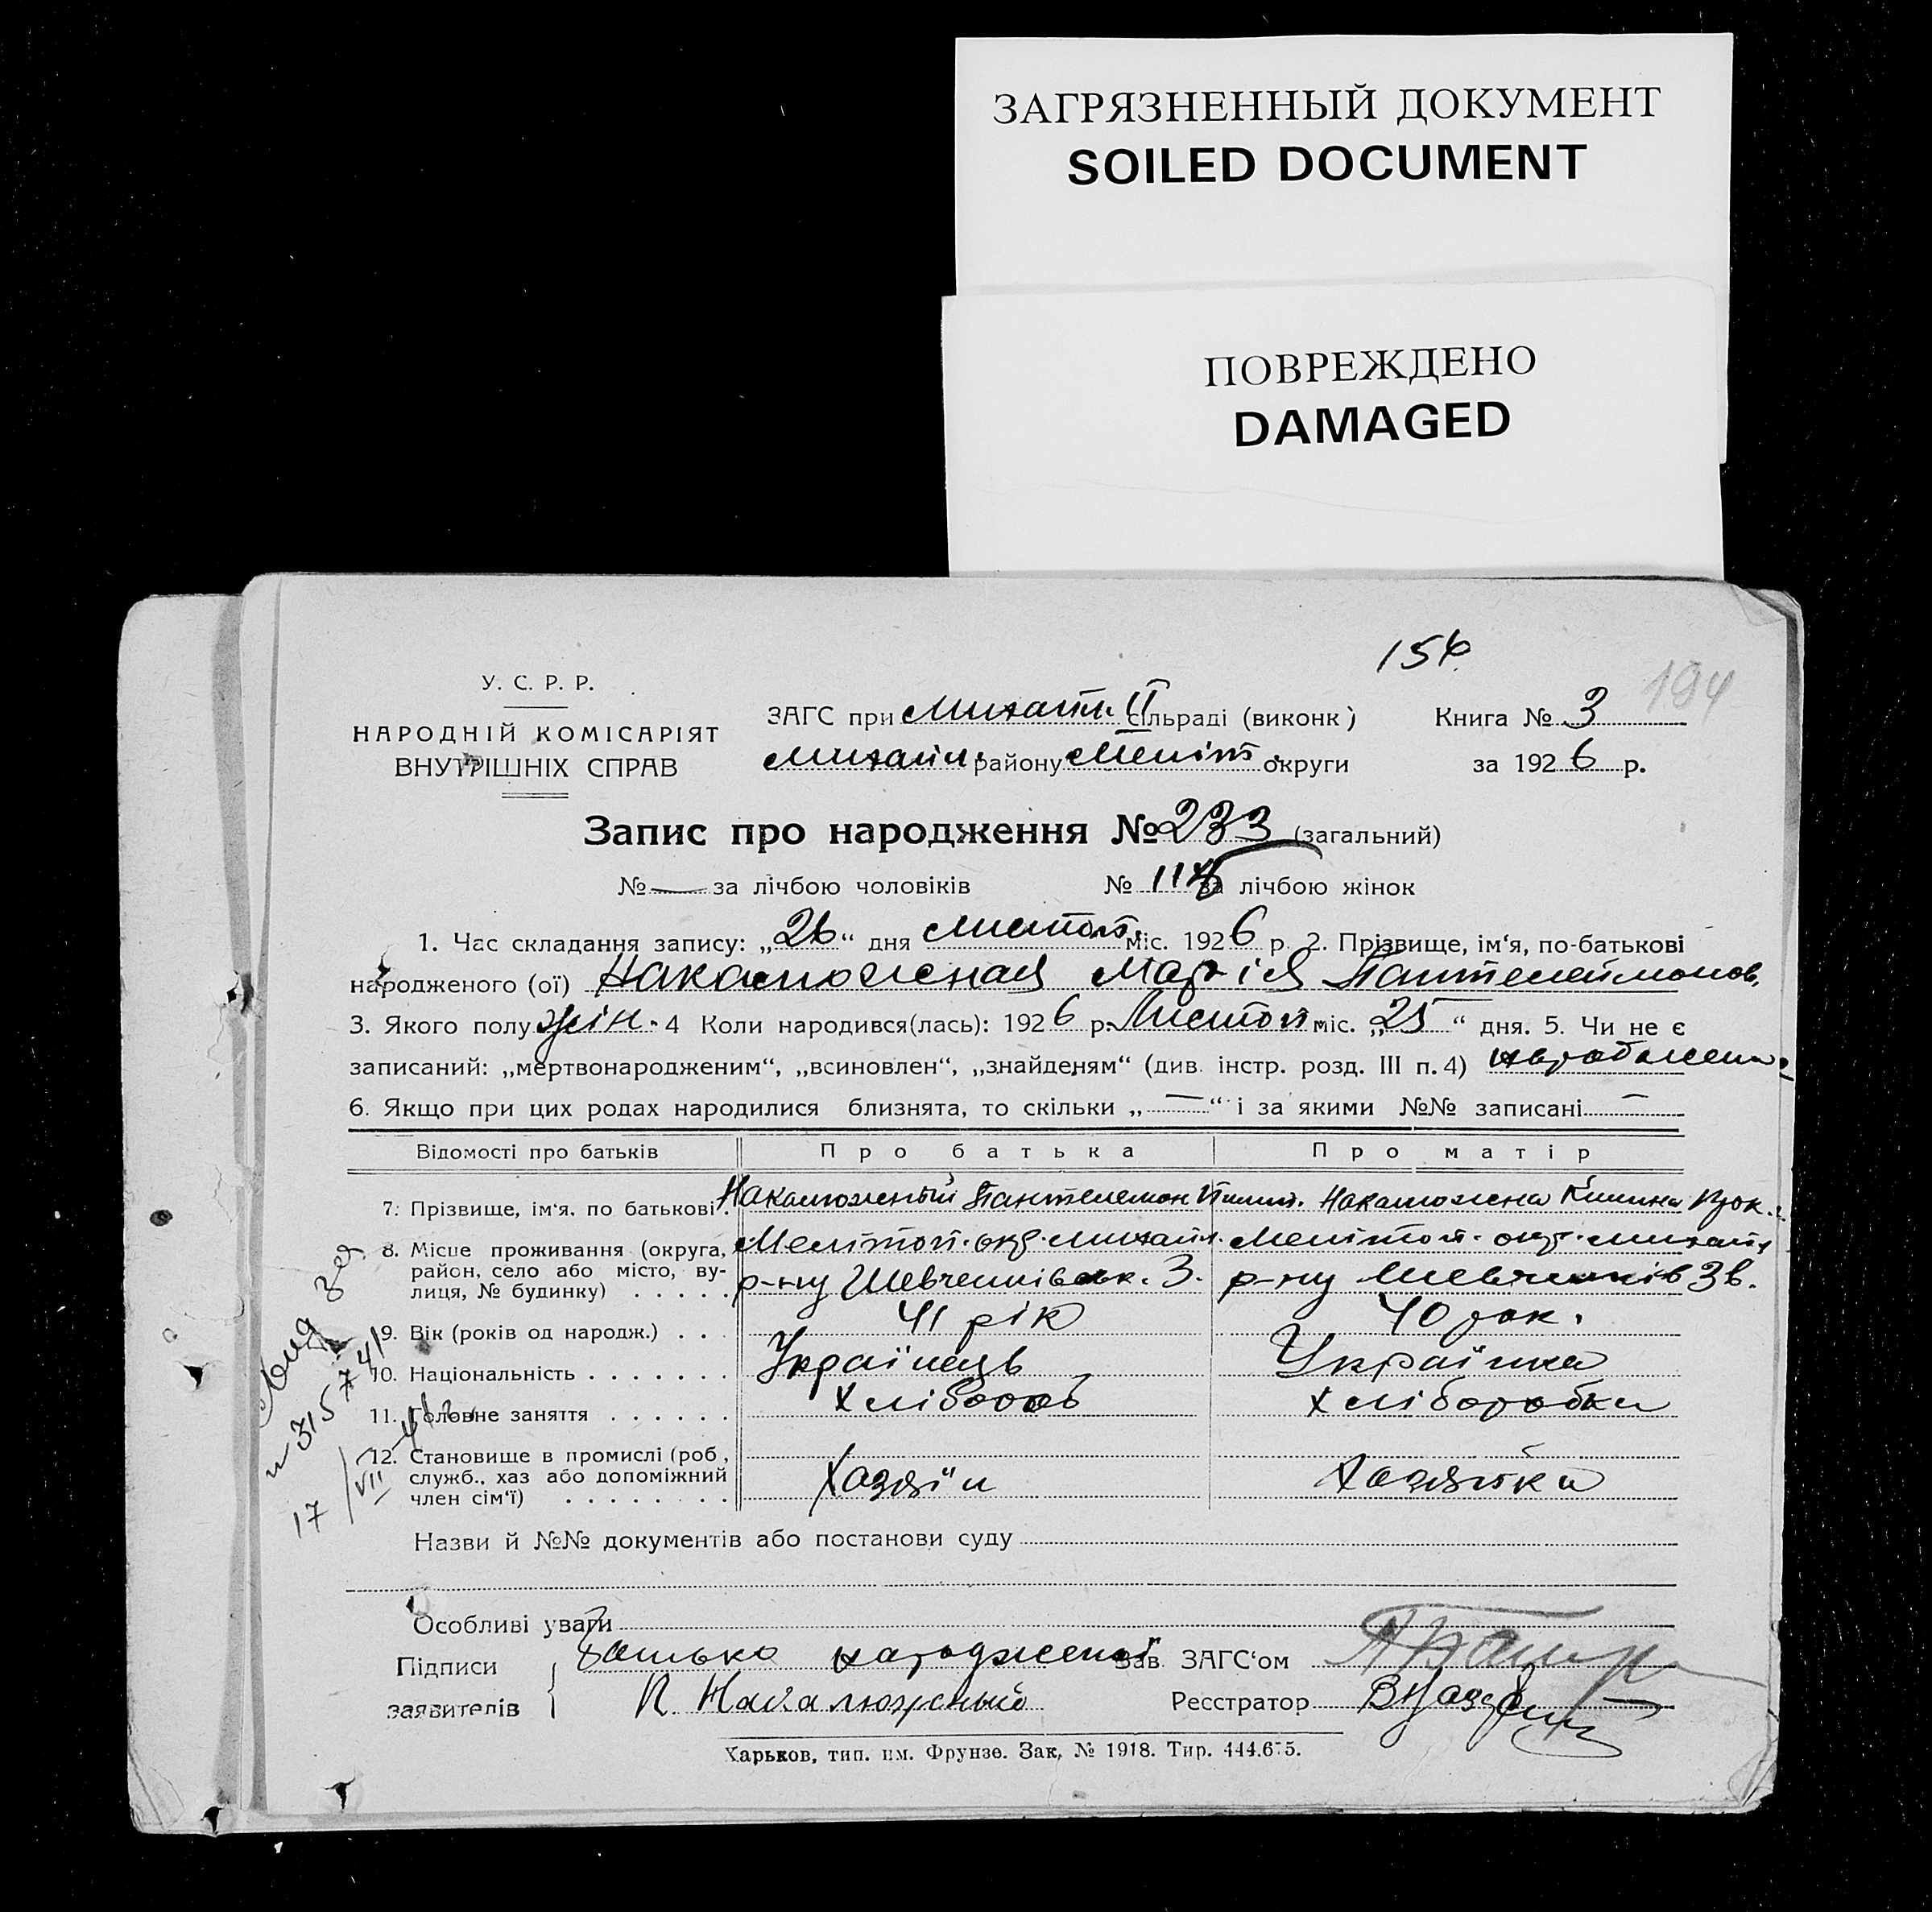 ЗАГРЯЗНЕННЫЙ ДОКУМЕНТ
SOILED DOCUMENT
ПОВРЕЖДЕНО
DAMAGED
156
194
У. С. Р. Р.
НАРОДНІЙ КОМІСАРІЯТ
ВНУТРІШНІХ СПРАВ
ЗАГС при Михайл. II сільраді (виконк)
Книга № 3
Михайл. району Меліт. округи
за 1926 р.
Запис про народження № 233 (загальний)
№ — за лічбою чоловіків № за лічбою жінок
1. Час складання запису: „26“ дня Листоп. міс. 1926 р. 2. Прізвище, ім‘я, по-батькові
народженого (ої) Накалюжная Марія Пантелеймонов.
3. Якого полу жін. 4 Коли народився(лась): 1926 р. Листоп. міс. „25“ дня. 5. Чи не є
записаний: „мертвонародженим“, „всиновлен“, „знайденям“ (див. інстр. розд. III п. 4)
6. Якщо при цих родах народилися близнята, то скільки „—“ і за якими №№ записані —
Відомості про батьків Про батька Про матір
7. Прізвище, ім‘я, по батькові. Накалюжный Пантелемон Накалюжна
8. Місце проживання (округа, район, село або місто, вулиця, № будинку) Мелітоп. окр. Михайл. Мелітоп. окр. Михайл.
р-ну Шевченківськ. 3. р-ну Шевченків 3в.
9. Вік (років од народж.) 41 рік 40 рок.
10. Національність Українець Українка
11. Головне заняття Хлібороб Хліборобка
12. Становище в промислі (роб., служб., хаз або допоміжний член сім‘ї) Хазяїн Хазяйка
17/VII
Назви й №№ документів або постанови суду
Особливі уваги
Підписи заявителів { Батько народженої
П. Накалюжный
Зав. ЗАГС‘ом
Реєстратор
Харьков, тип. им. Фрунзе. Зак. № 1918. Тир. 444.675.